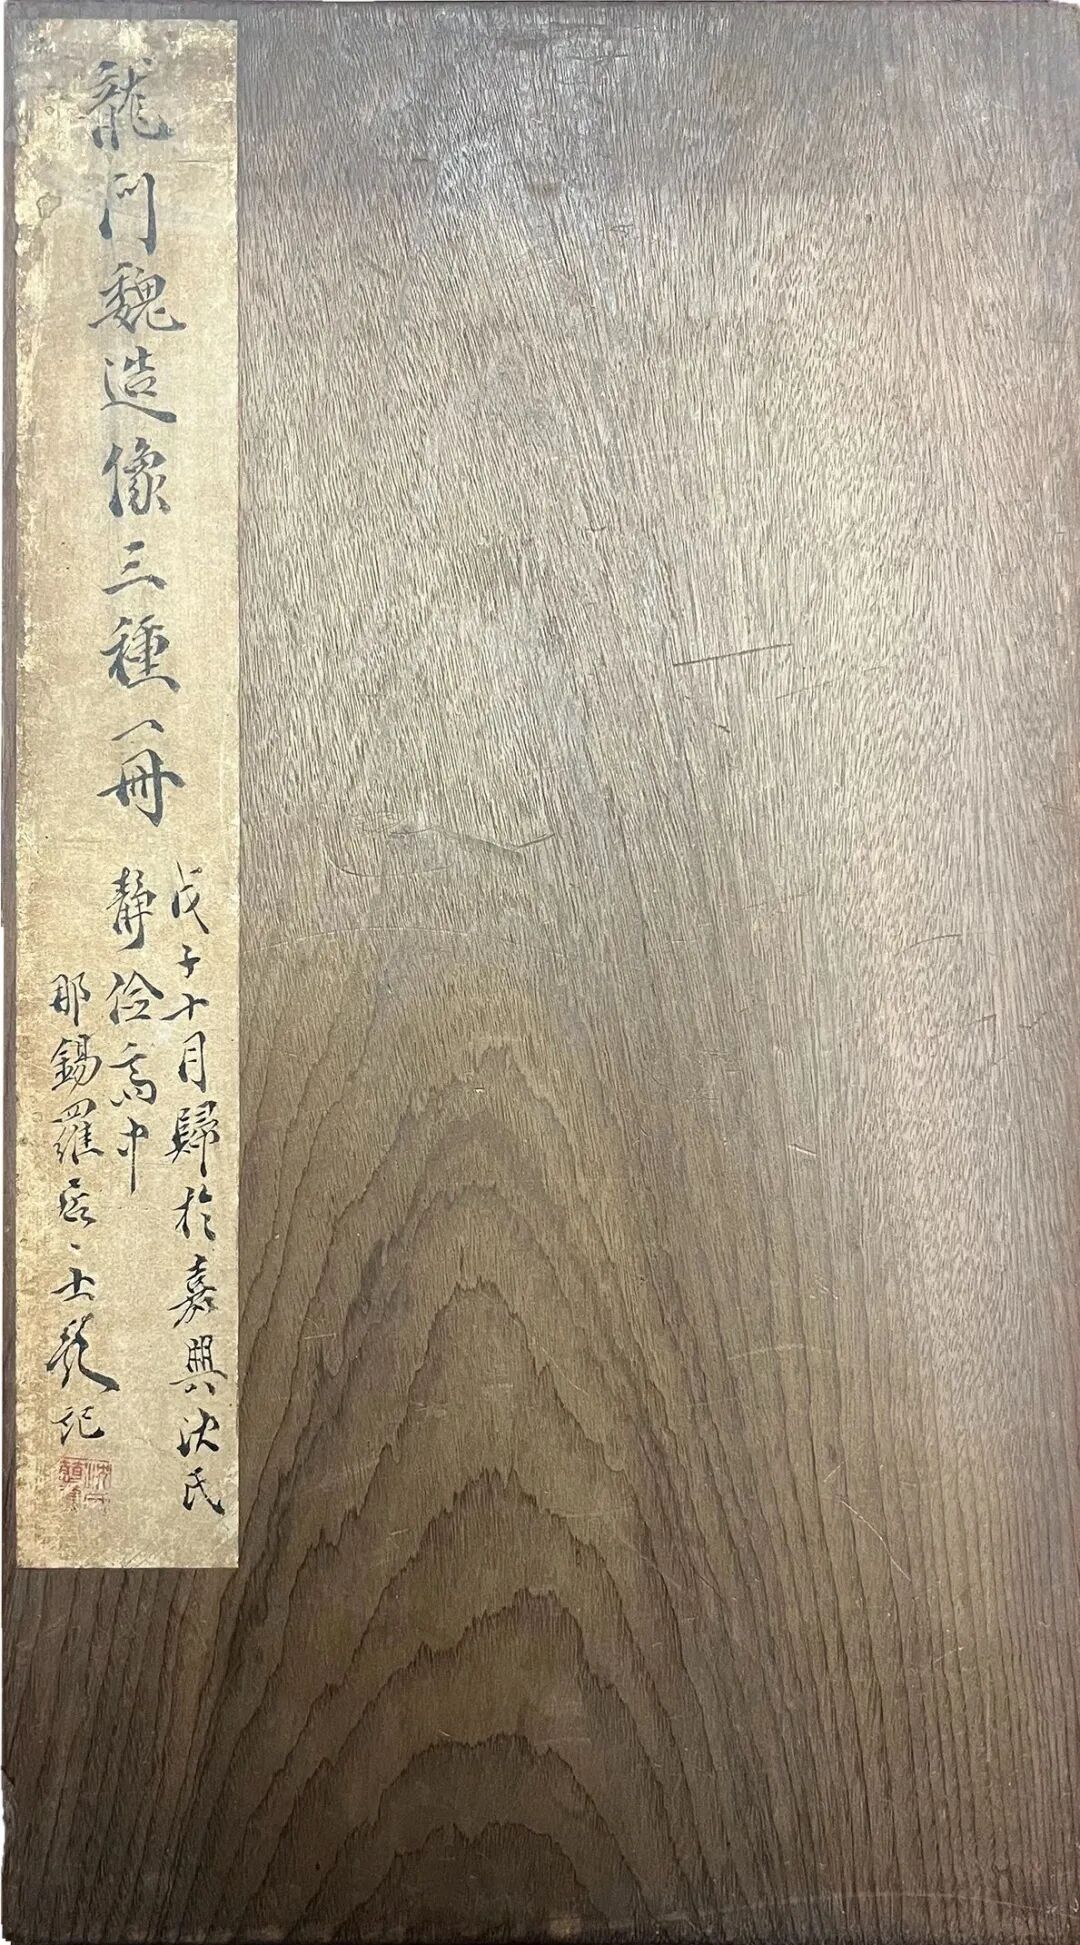 龍門魏造像三種一冊
戊子十月歸於嘉興沈氏
靜儉齋中
那錫羅居士題記